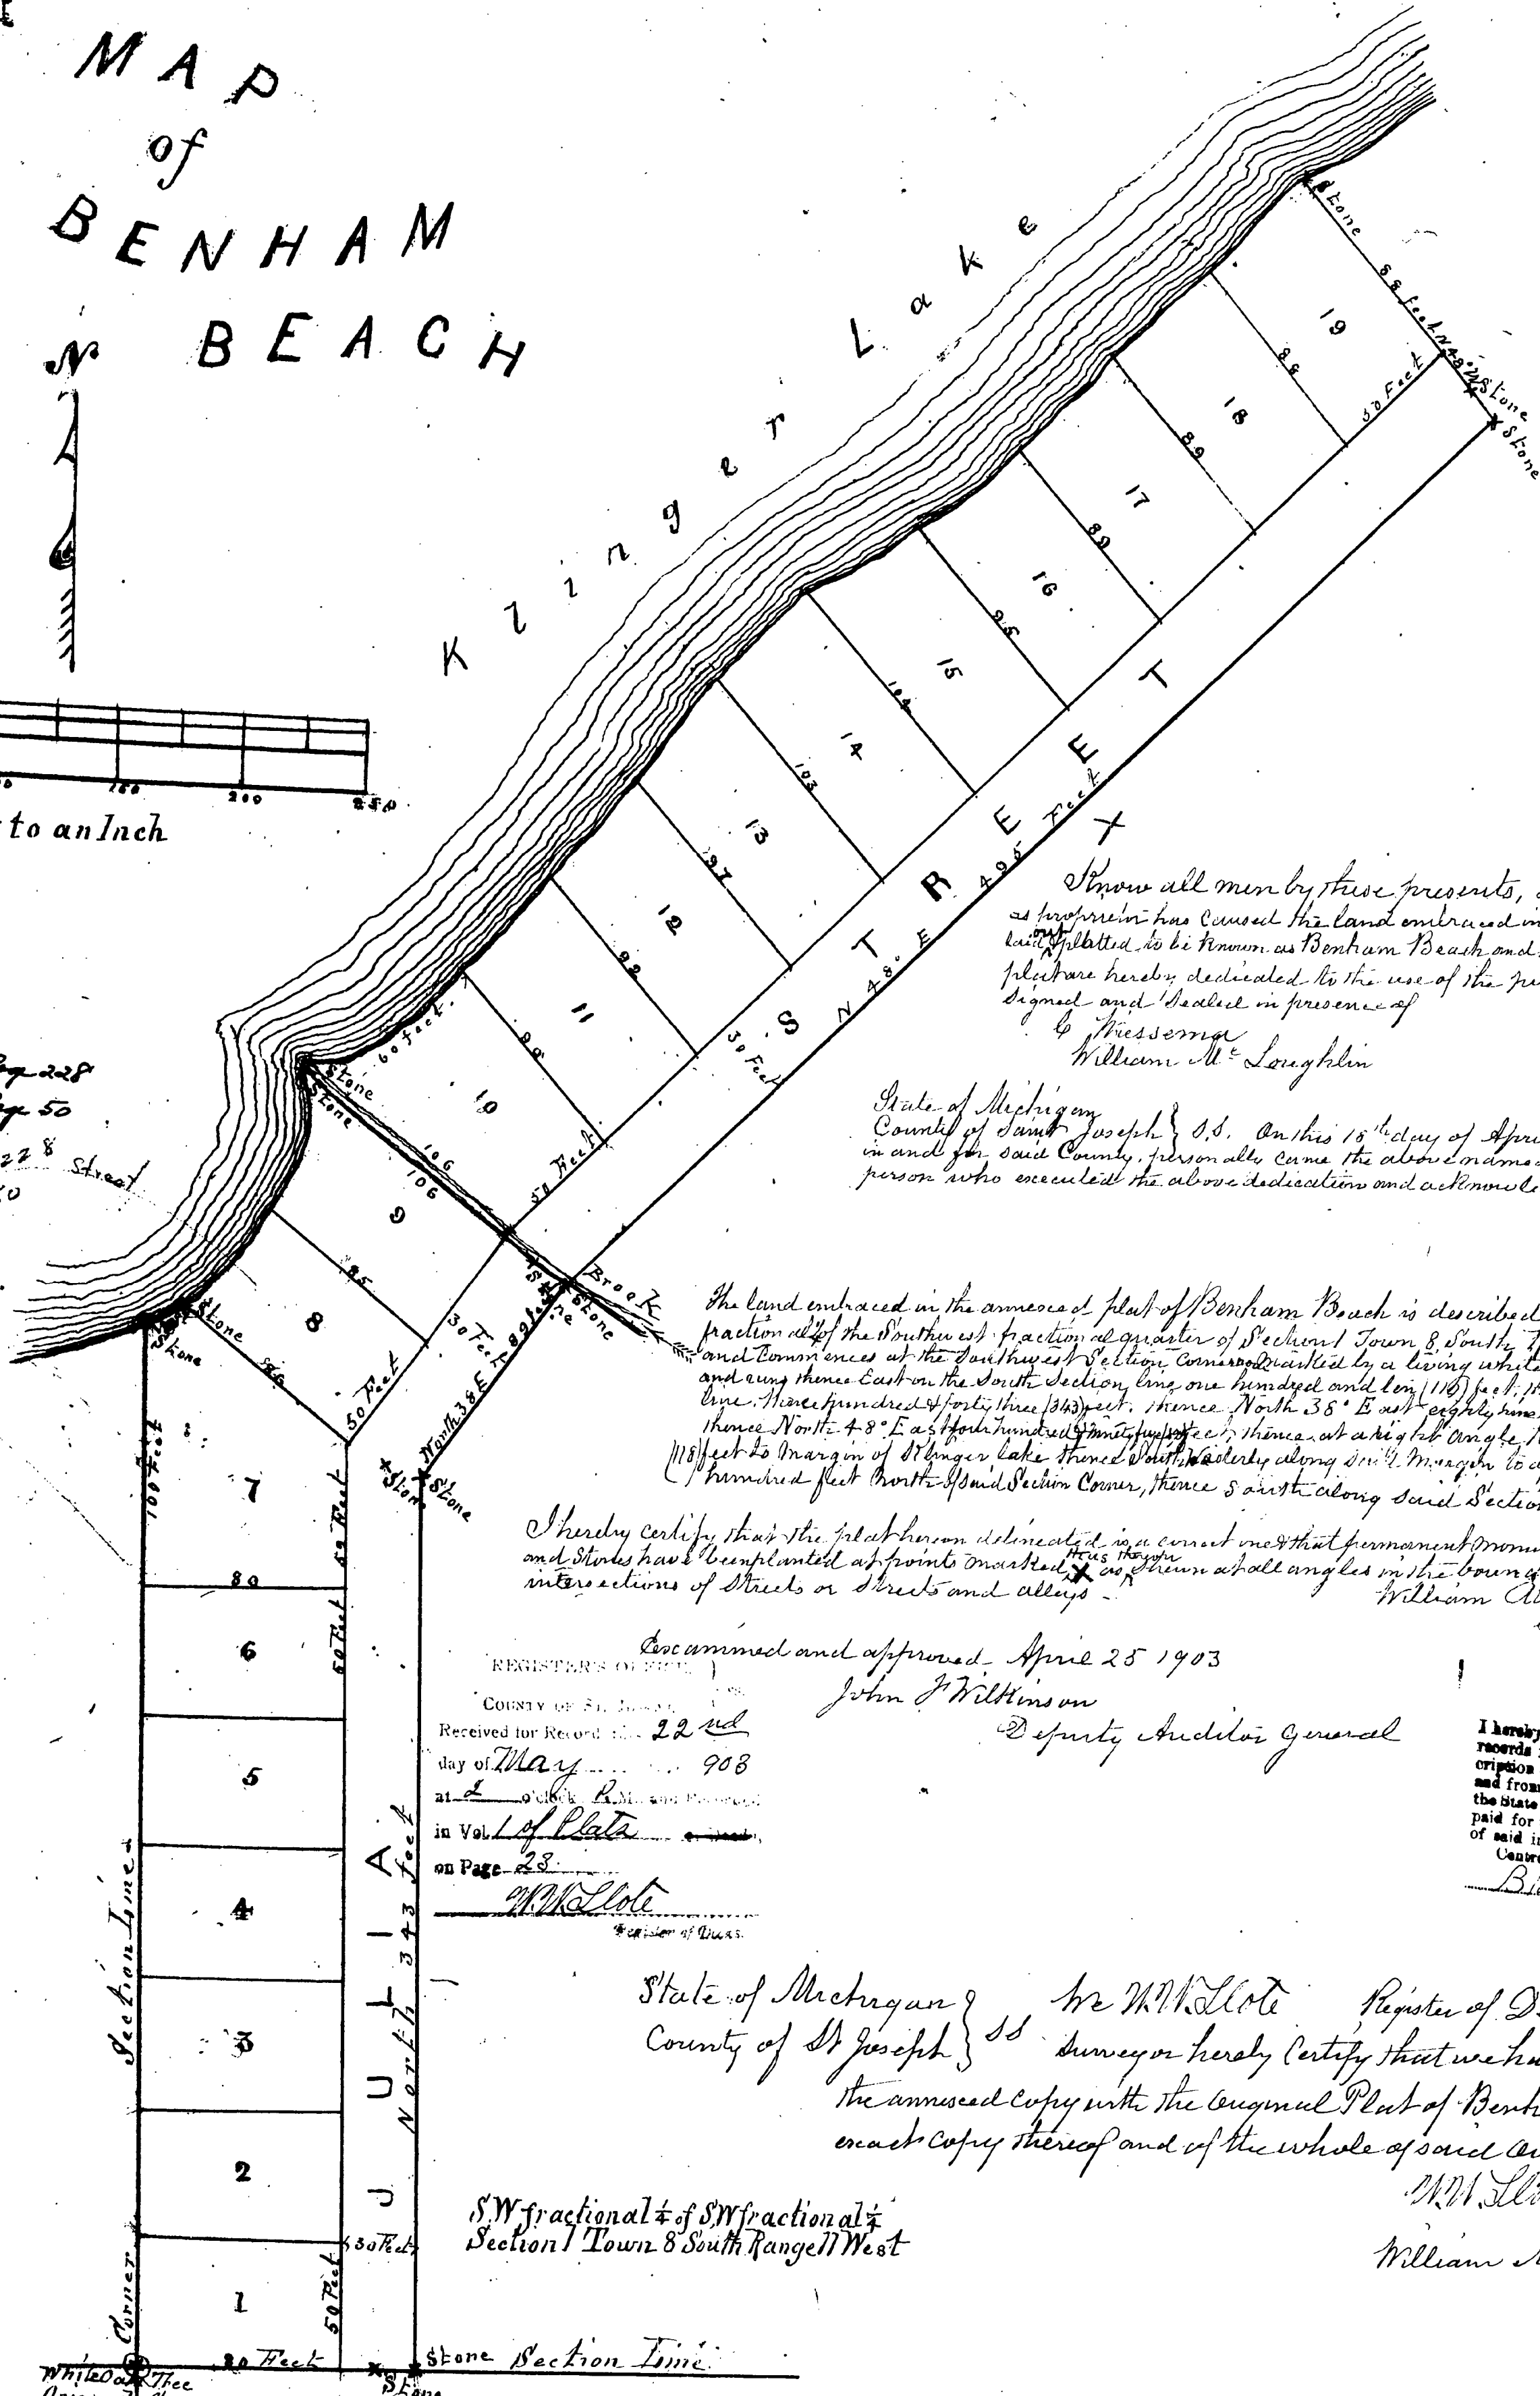 MAP
of
BENHAM
BEACH
N
Klinger Lake
200
250
to an Inch
228
50
Street
Stone
88 feet
Stone
Stone
50 Feet
19
86
18
89
17
89
16
95
15
104
14
103
13
97
12
92
11
60 feet
10
Stone
Stone
106
106
50 Feet
9
95
8
30 Feet
STREET
N 48° E 495 Feet
30 Feet
Brook
Stone
Stone
North 38 E 89 feet
50 Feet
Stone
Stone
Stone
Stone
100 Feet
7
80
50 Feet
6
5
4
3
2
1
50 Feet
30 Feet
80 Feet
JULIA
North 343 Feet
Section Line
Corner
White Oak Tree
Stone Section Line
Stone
Know all men by these presents,
as proprietor has caused the land embraced in
laid out & platted to be known as Benham Beach and
plat are hereby dedicated to the use of the
Signed and Sealed in presence of
William Mc Loughlin
State of Michigan
County of Saint Joseph } S.S. On this 15th day of
in and for said County, personally came the above named
person who executed the above dedication and
The land embraced in the annexed plat of Benham Beach is described
fractional ¼ of the Southwest fractional quarter of Section 1 Town 8 South
and Commences at the Southwest Section Corner marked by a living white
and runs thence East on the South Section line one hundred and ten (110) feet,
line, three hundred & forty three (343) feet, thence North 38° East eighty nine
thence North 48° East four hundred & ninety five feet, thence at a right angle
(118) feet to margin of Klinger lake thence South Westerly along said Margin to
hundred feet North of said Section Corner, thence south along said Section
I hereby certify that the plat hereon delineated is a correct one & that permanent
and Stones have been planted at points marked thus X as thereon shewn at all angles in the
intersections of Streets or Streets and alleys -
William
Examined and approved April 25 1903
John F Wilkinson
Deputy Auditor General
REGISTER'S OFFICE
COUNTY OF
Received for Record 22nd
day of May 1903
at 2 o'clock P.M.
in Vol 1 of Plats
on Page 23
W.W. Slote
Register of Deeds.
I hereby
records
cription
and from
the State
paid for
of said
State of Michigan }
County of St Joseph } SS
We W.W. Slote Register of
Surveyor hereby Certify that we
the annexed copy with the Original Plat of
exact copy thereof and of the whole of said
W.W.
William
S.W fractional ¼ of S.W fractional ¼
Section 1 Town 8 South Range 11 West